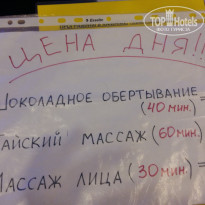 TOP Hotels
ЦЕНА ДНЯ!!!
ШОКОЛАДНОЕ ОБЕРТЫВАНИЕ
(40 мин.) =
АЙСКИЙ МАССАЖ (60 мин.)
МАССАЖ ЛИЦА (30 мин.) =